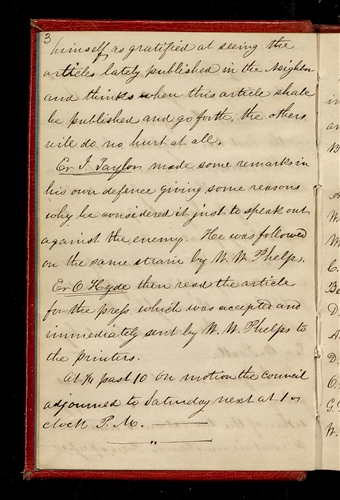 3
himself, as gratified at seeing the
articles lately published in the Neighbor
and thinks when this article shall
be published and go forth, the others
will do no hurt at all.
Er J. Taylor made some remarks in
his own defence giving some reasons
why he considered it just to speak out
against the enemy. He was followed
on the same strain by W. W. Phelps.
Er O. Hyde then read the article
for the press which was accepted and
immediately sent by W. W. Phelps to
the printers.
At ¼ past 10 on motion the council
adjourned to Saturday next at 1 o
clock P. M.
in
an
B
A
W
W
C.
B
D.
A.
D
O.
G.
W.